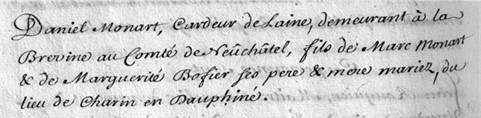 Daniel Monart, Cardeur de Laine, demeurant à la
Brevine au Comté de Neuchâtel, fils de Marc Monart
& de Marguerite Bofier feo pere & mere mariez, du
lieu de Charin en Dauphiné.